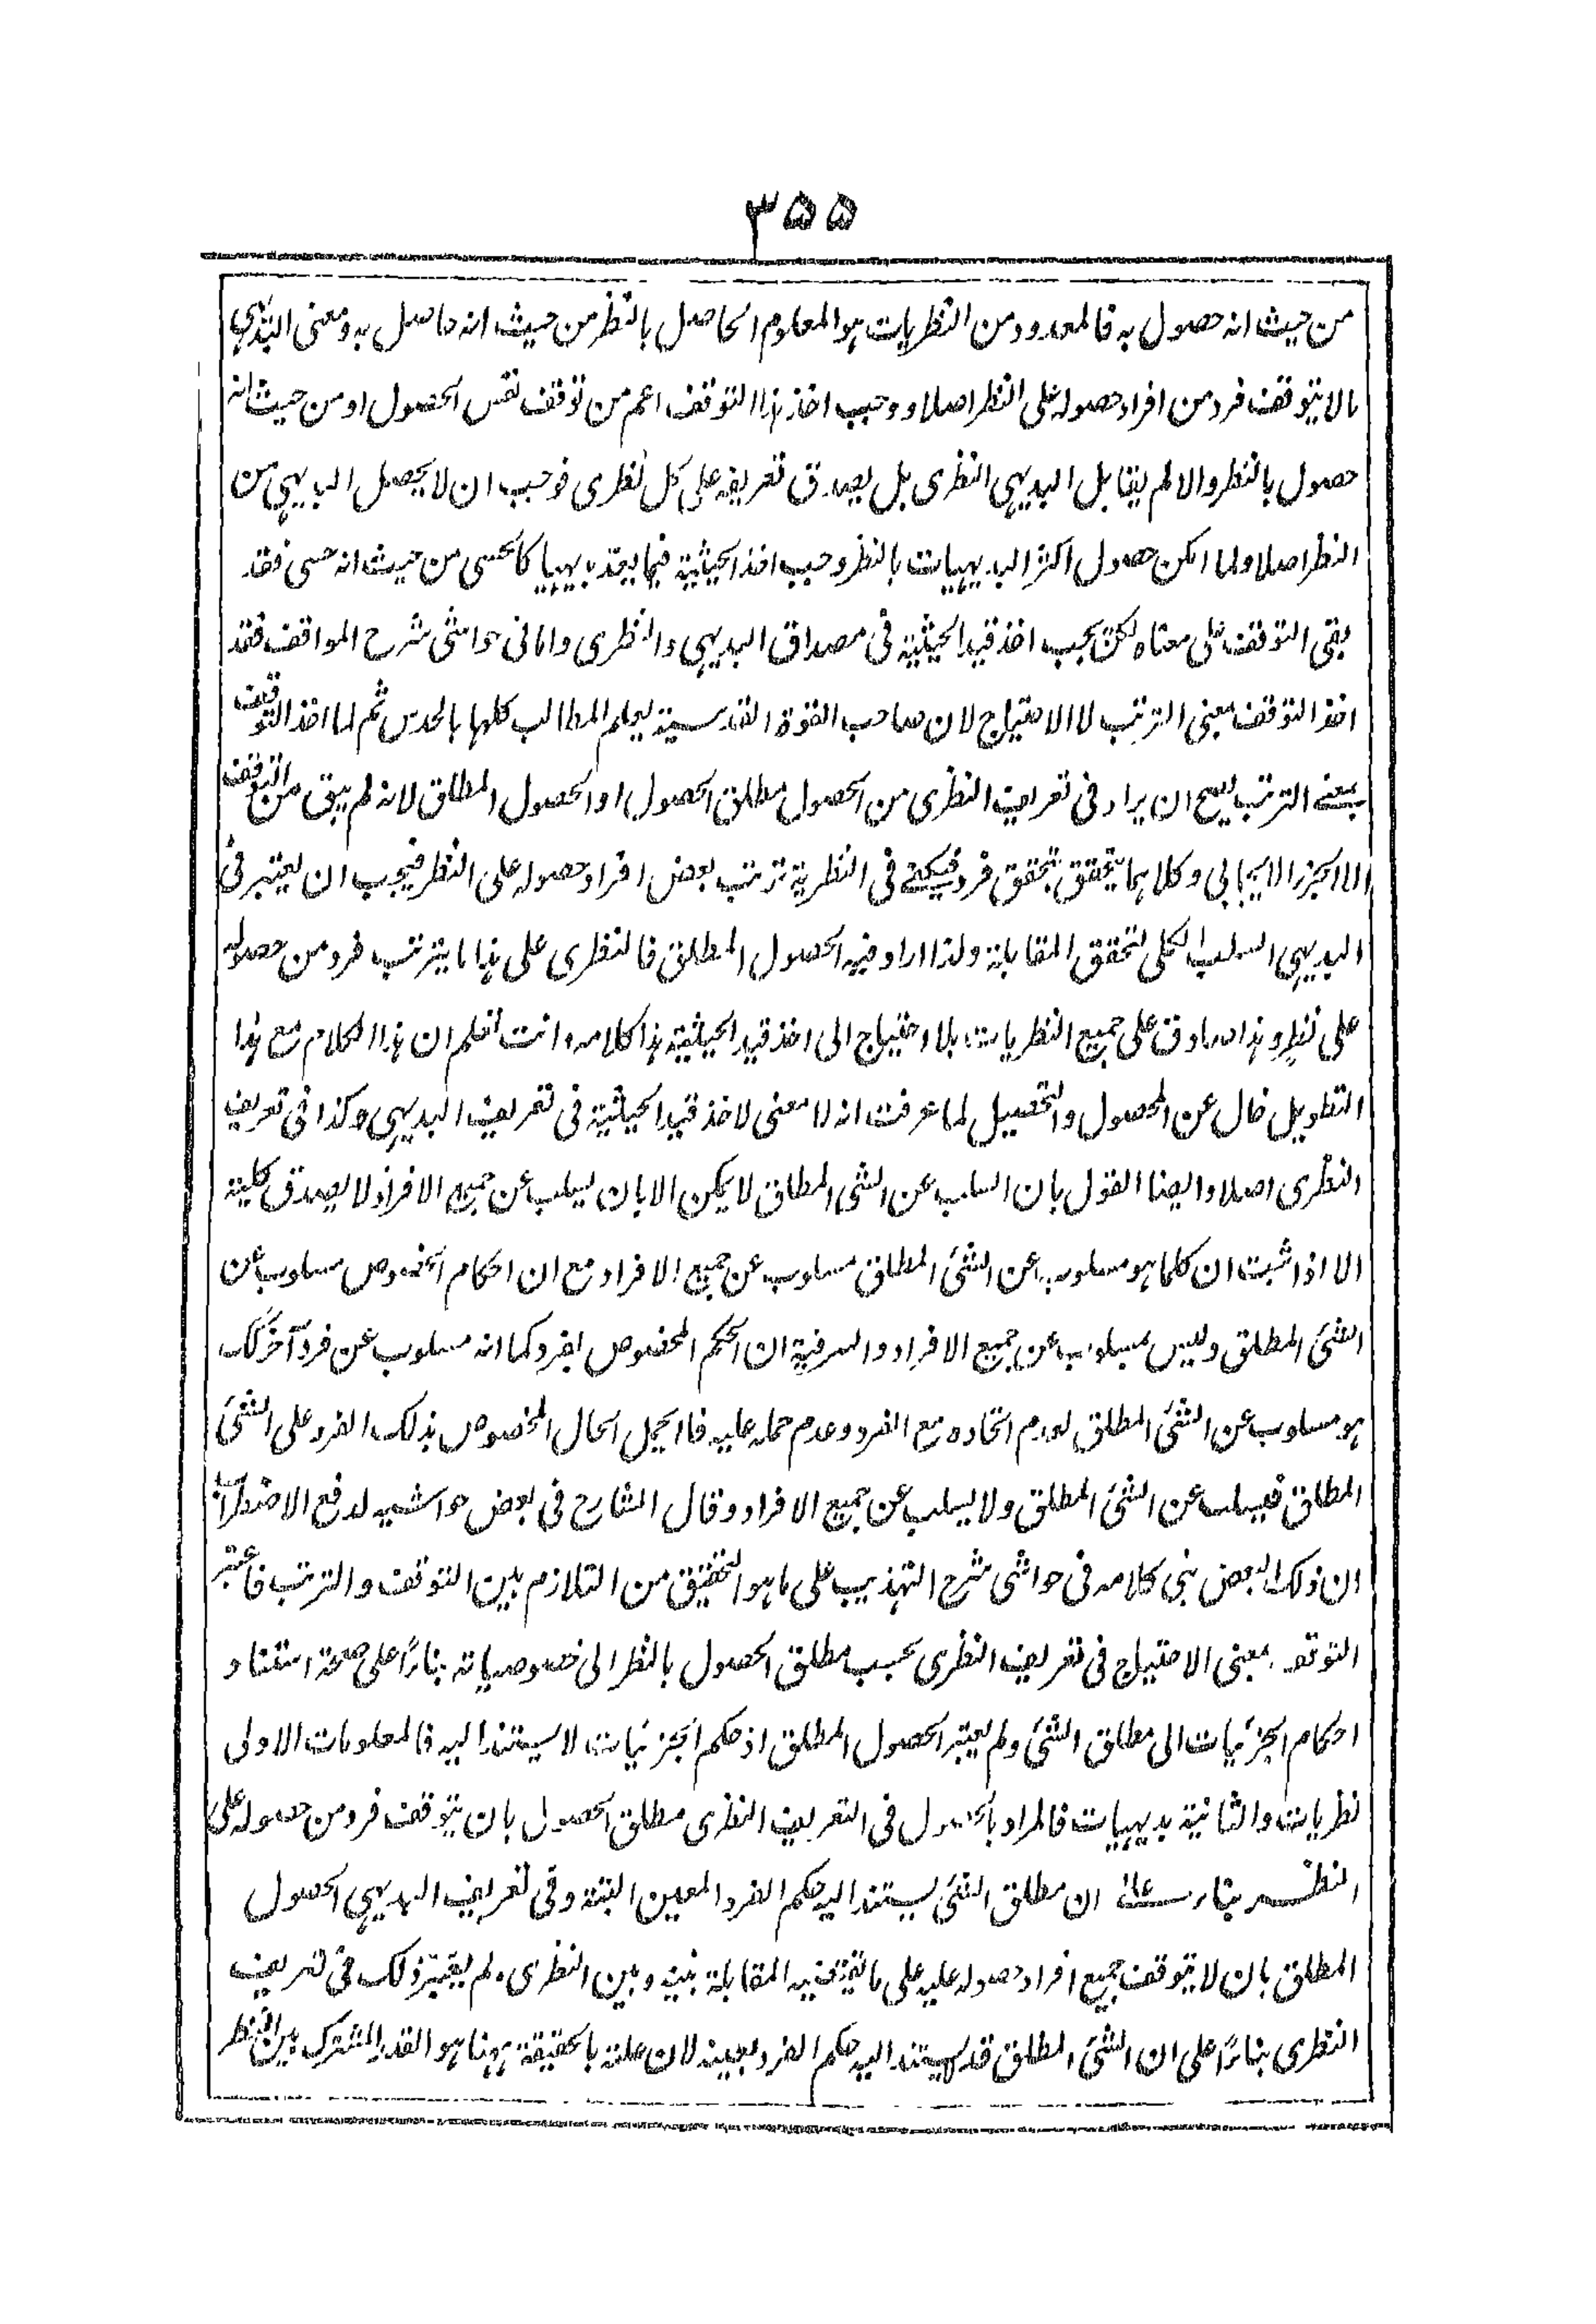 ۳۵۵
من حيث انه حصول به فالمعدود من النظريات هو المعلوم الحاصل بالنظر من حيث انه حاصل به ومعنى البديهي
مالا يتوقف فرد من افراد حصوله على النظر اصلا ووجب اخذ هذا التوقف اعم من توقف نفس الحصول او من حيث انه
حصول بالنظر والا لم يقابل البديهي النظرى بل يصدق تعريفه على كل نظرى فوجب ان لا يحصل البديهي من
النظر اصلا ولما امكن حصول اكثر البديهيات بالنظر وجب اخذ الحيثية فيما يعد بديهيا كالحسى من حيث انه حسى فقد
بقى التوقف على معناه لكن يجب اخذ قيد الحيثية فى مصداق البديهي والنظرى واما فى حواشى شرح المواقف فقد
اخذ التوقف بمعنى الترتب لا الاحتياج لان صاحب القوة القدسية يعلم المطالب كلها بالحدس ثم لما اخذ التوقف
بمعنے الترتب يصح ان يراد فى تعريف النظرى من الحصول مطلق الحصول او الحصول المطلق لانه لم يبق من التوقف
الا الجزء الايجابى وكلاهما يتحقق بتحقق فرد فيكفے فى النظرية ترتب بعض افراد حصوله على النظر فيجب ان يعتبر فى
البديهي السلب الكلى لتحقق المقابلة ولذا اراد فيه الحصول المطلق فالنظرى على هذا ما يترتب فرد من حصوله
على نظر وهذا صادق على جميع النظريات بلا احتياج الى اخذ قيد الحيثية هذا كلامه وانت تعلم ان هذا الكلام مع هذا
التطويل خال عن المحصول والتحصيل لما عرفت انه لا معنى لاخذ قيد الحيثية فى تعريف البديهي وكذا فى تعريف
النظرى اصلا وايضا القول بان السلب عن الشئ المطلق لا يمكن الا بان يسلب عن جميع الافراد لا يصدق كلية
الا اذا ثبت ان كلما هو مسلوب عن الشئ المطلق مسلوب عن جميع الافراد مع ان احكام الخصوص مسلوب عن
الشئ المطلق وليس بمسلوب عن جميع الافراد والسر فيه ان الحكم المخصوص بفرد كما انه مسلوب عن فرد آخر كك
هو مسلوب عن الشئ المطلق لعدم اتحاده مع الفرد وعدم حمله عليه فلا يحمل الحال المخصوص بذلك الفرد على الشئ
المطلق فيسلب عن الشئ المطلق ولا يسلب عن جميع الافراد وقال الشارح فى بعض حواشيه لدفع الاضطراب
ان ذلك البعض بنى كلامه فى حواشى شرح التهذيب على ما هو التحقيق من التلازم بين التوقف والترتب فاعتبر
التوقف بمعنى الاحتياج فى تعريف النظرى بحسب مطلق الحصول بالنظر الى خصوصياته بناءً على صحة استناد
احكام الجزئيات الى مطلق الشئ ولم يعتبر الحصول المطلق اذ حكم الجزئيات لا يستند اليه فالمعلومات الاولى
نظريات والثانية بديهيات فالمراد بالحصول فى التعريف النظرى مطلق الحصول بان يتوقف فرد من حصوله على
النظر بناء على ان مطلق الشئ يستند اليه حكم الفرد المعين البتة وفى تعريف البديهي الحصول
المطلق بان لا يتوقف جميع افراد حصوله عليه على ما يقتضيه المقابلة بينه وبين النظرى ولم يعتبر ذلك فى تعريف
النظرى بناءً على ان الشئ المطلق قد يستند اليه حكم الفرد بعينه لان علته بالحقيقة ههنا هو القدر المشترك بين النظر